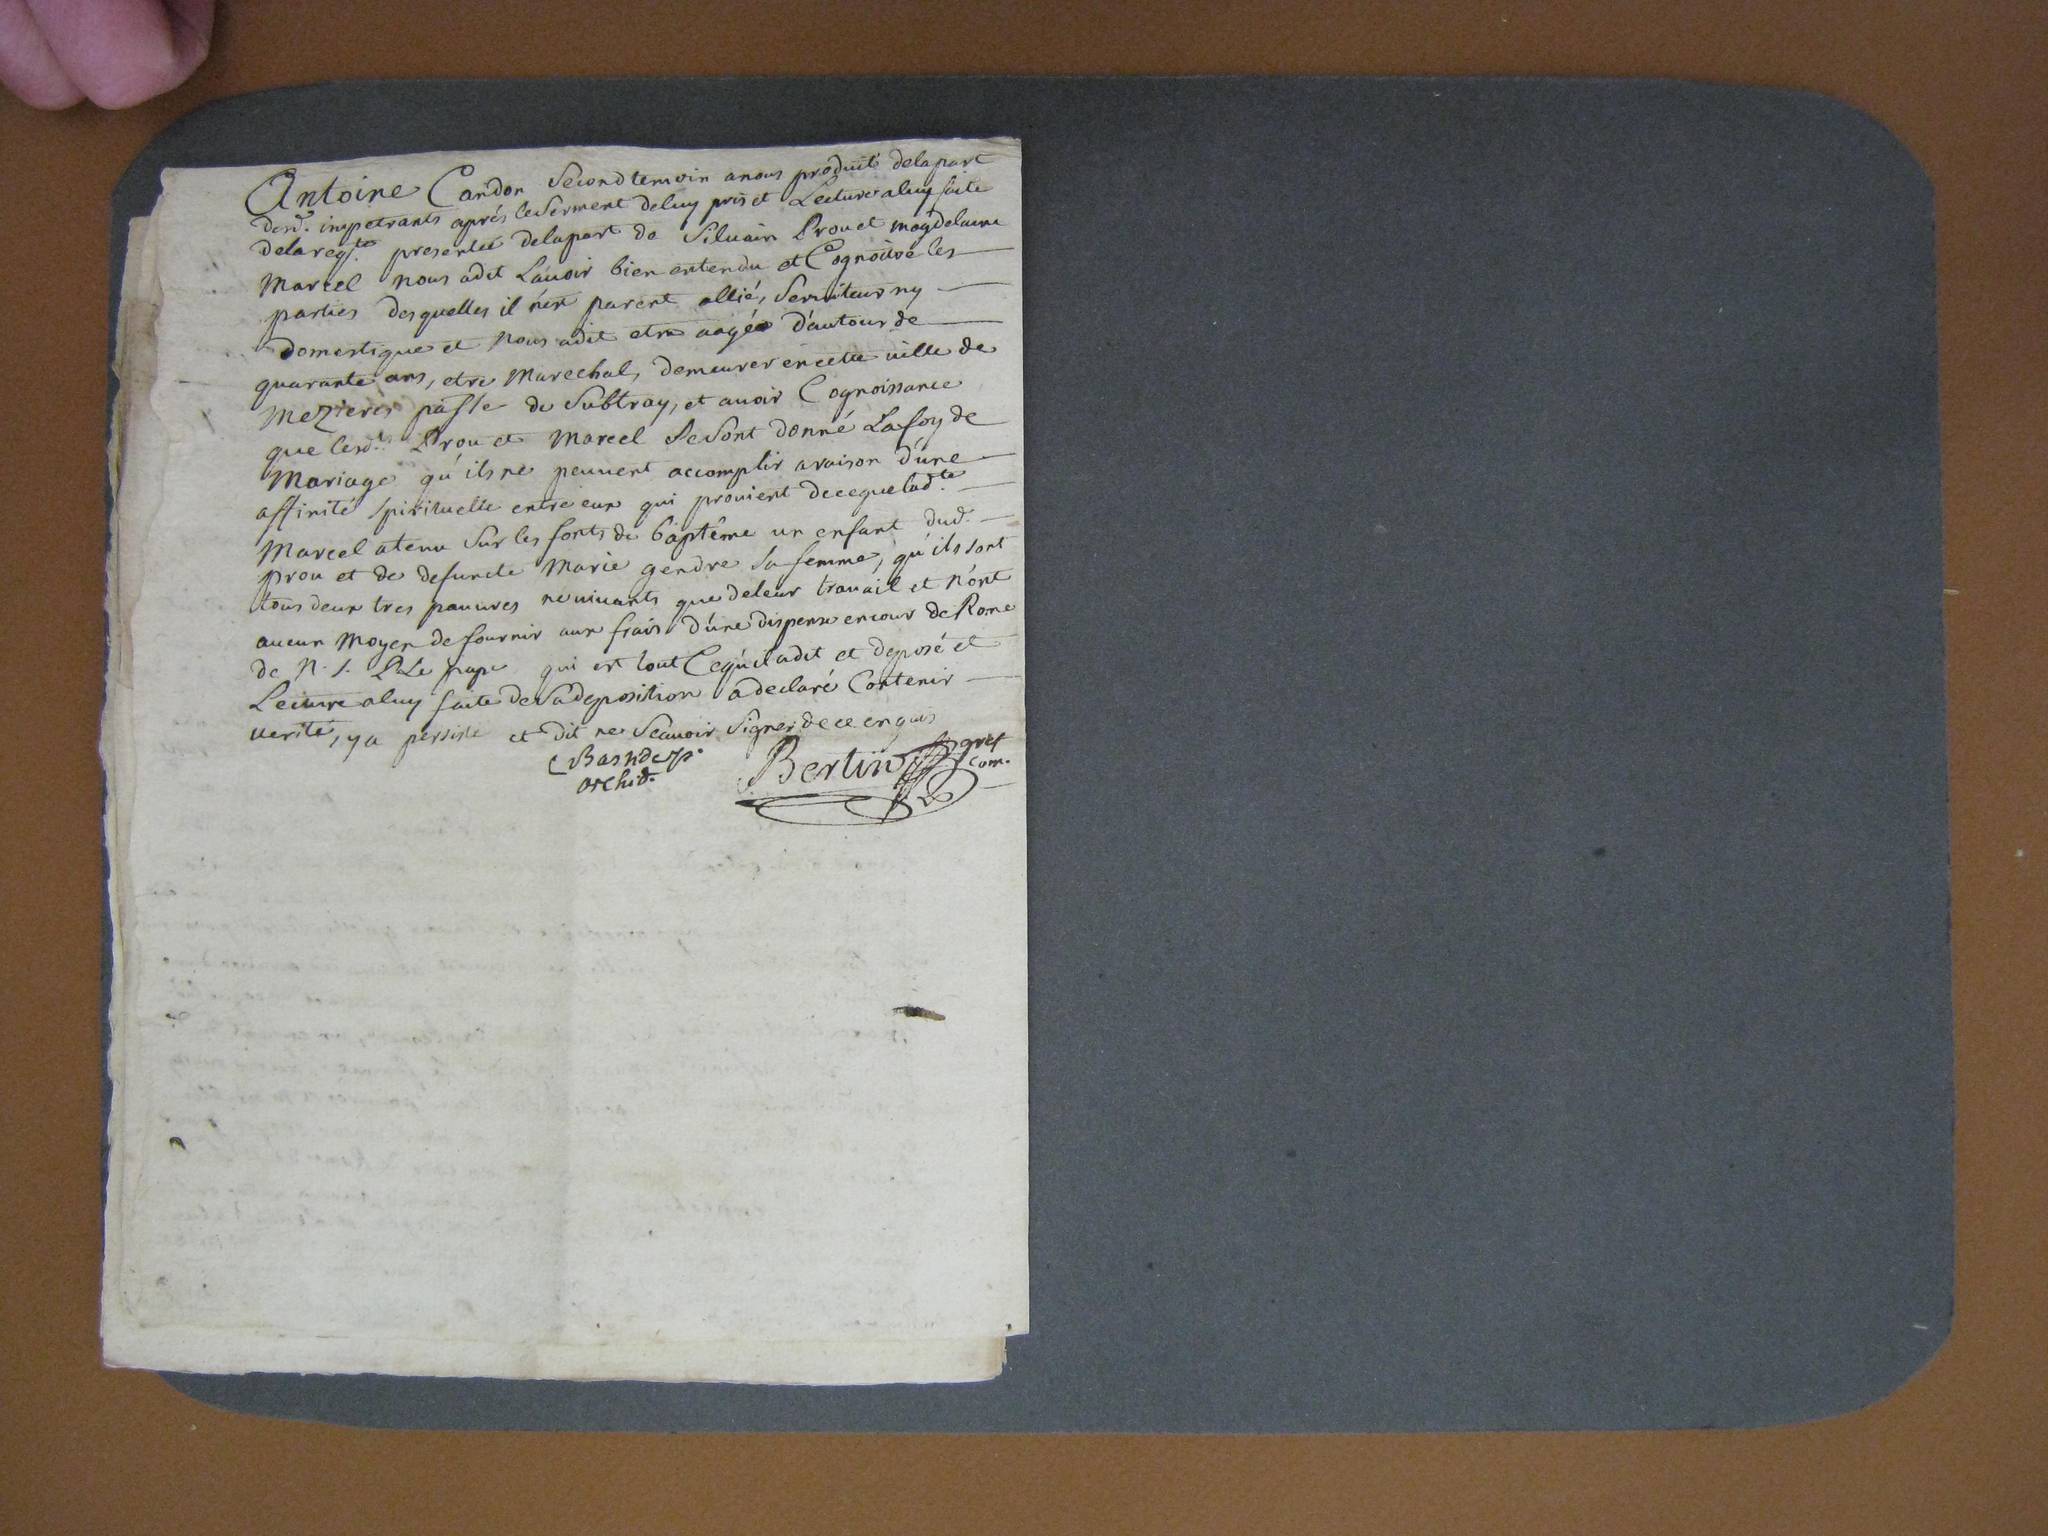 Antoine Candon Second temoin a nous produité de la part
desd. impetrants aprés le Serment de luy pris et Lecture a luy faite
de la reqte. presentée de la part de Siluain Prou et magdelaine
Marcel nous a dit Lauoir bien entendu et Cognoitre les
parties desquelles il n'est parent allié, Seruiteur ny
domestique et nous a dit etre aagé d'autour de
quarante ans, etre Marechal, demeurer en cette uille de
Mezieres passe de Subtray, et auoir Cognoissance
que lesd. Prou et Marcel Se Sont donné La foy de
Mariage qu'ils ne peuuent accomplir a raison d'une
affinité Spirituelle entre eux qui prouient de ce que ladte.
Marcel a tenu Sur les fonts de baptême un enfant dud.
prou et de defuncte Marie gendre Sa femme, qu'ils sont
tous deux tres pauures ne uiuants que de leur trauail et n'ont
aucun Moyen de fournir aux frais d'une dispense en cour de Rome
de N. S. P. Le pape qui est tout Ce qu'il a dit et deposé et
Lecture a luy faite de Sa deposition a declaré Contenir
uerité, y a persisté et dit ne Scauoir Signer de ce enquis
archid.
Bertin gref
com.